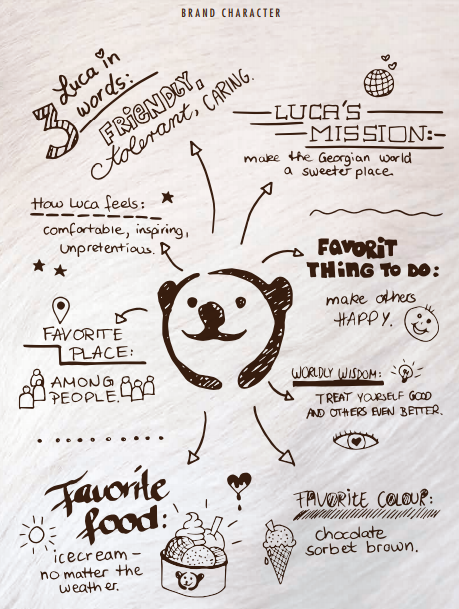 BRAND CHARACTER
Luca in
3 words:
FRIENDLY,
tolerant, CARING.
LUCA'S
MISSION:-
make the Georgian world
a sweeter place.
How Luca feels:
comfortable, inspiring,
unpretentious.
FAVORIT
THING TO DO:
make others
HAPPY.
FAVORITE
PLACE:
AMONG
PEOPLE.
WORLDLY WISDOM:
TREAT YOURSELF GOOD
AND OTHERS EVEN BETTER.
Favorite
food:
icecream -
no matter the
weather.
FAVORITE COLOUR:
chocolate
sorbet brown.